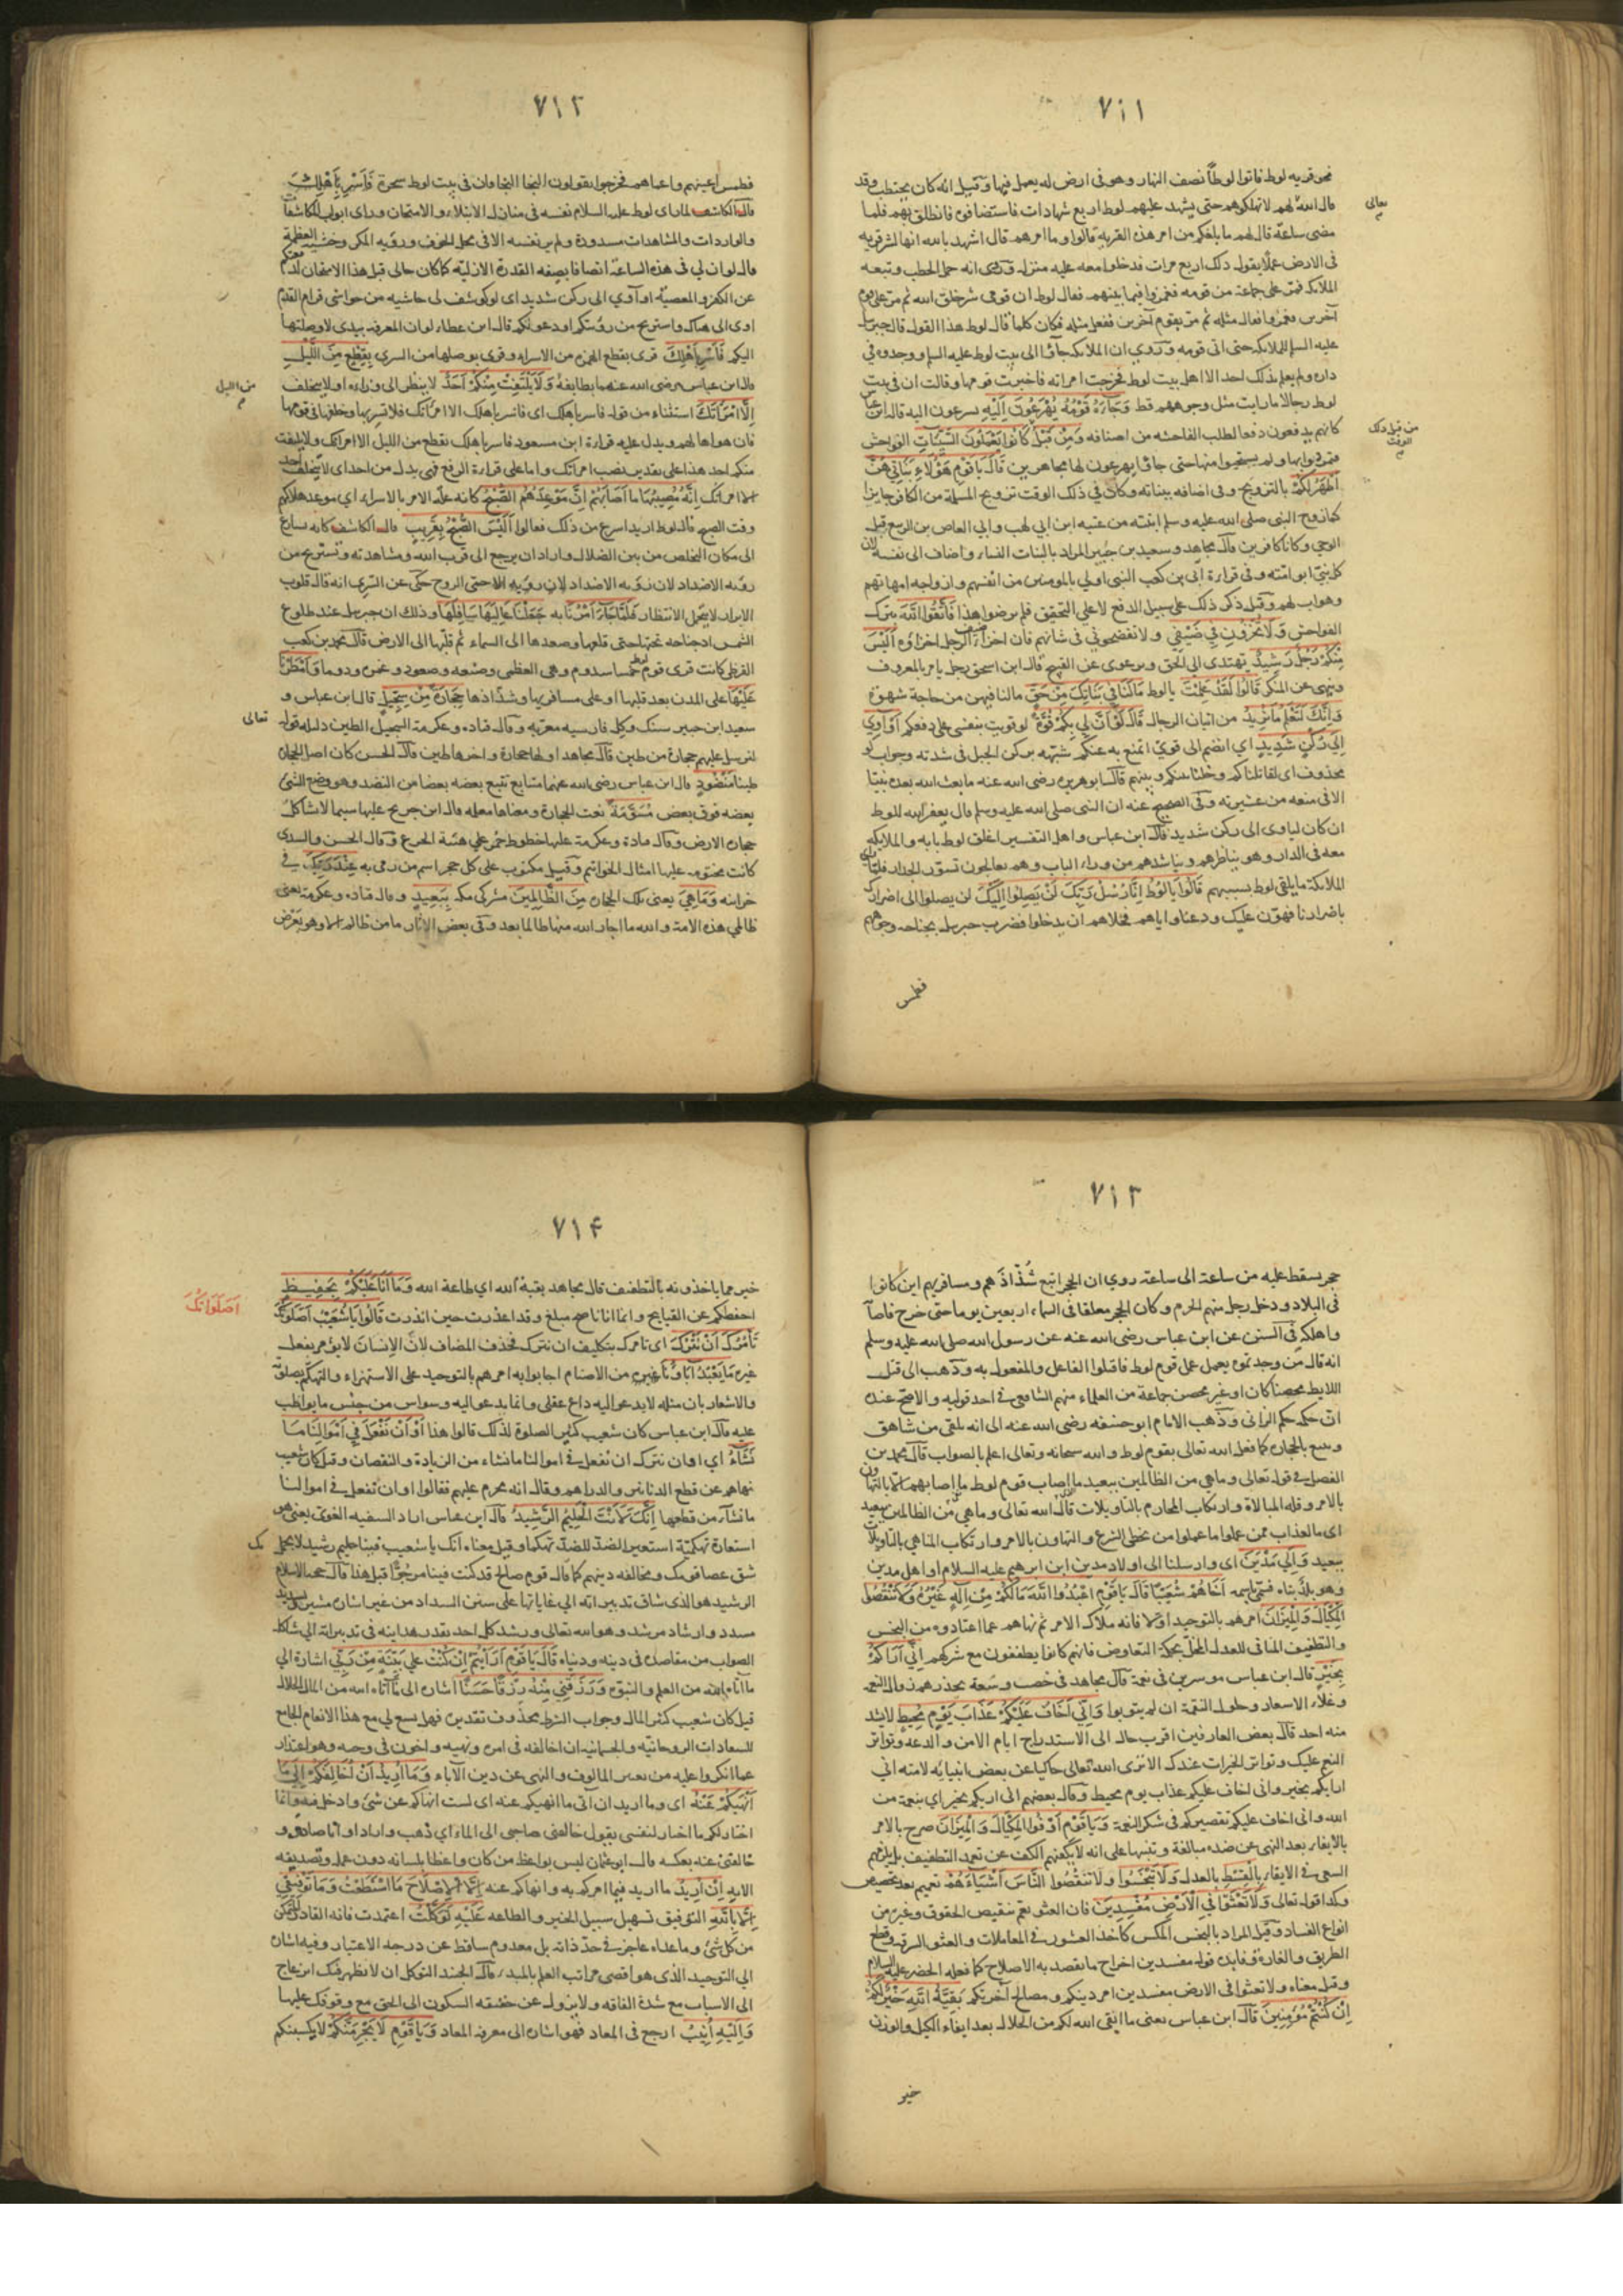 ٧١١
نحو قرية لوط فاتوا لوطاً نصف النهار وهو فى ارض له يعمل فيها وقيل انه كان يحتطب وقد
قال الله لهم لا تهلكوهم حتى يشهد عليهم لوط اربع شهادات فاستضافوه فانطلق بهم فلما
تعالى
مضى ساعة قال لهم ما بلغكم من امر هذه القرية قالوا وما امرهم قال اشهد بالله انها لشر قرية
فى الارض عملا يقول ذلك اربع مرات فدخلوا معه عليه منزله وروى انه حمل الحطب وتبعه
الملائكة فمر على جماعة من قومه فغمزوا فيما بينهم فقال لوط ان قومى شر خلق الله ثم مر على قوم
آخرين فغمزوا فقال مثله ثم مر بقوم آخرين ففعل مثله فكان كلما قال لوط هذا القول قال جبريل
عليه السلم للملائكة حتى اتى قومه وروى ان الملائكة جاؤا الى بيت لوط عليه السلم ووجدوه فى
داره ولم يعلم بذلك احد الا اهل بيت لوط فخرجت امراته فاخبرت قومها وقالت ان فى بيت
لوط رجالا ما رايت مثل وجوههم قط وَجَاءَهُ قَوْمُهُ يُهْرَعُونَ اِلَيْهِ يسرعون اليه قال ابن عباس
كانهم يدفعون دفعا لطلب الفاحشة من اضيافه وَمِنْ قَبْلُ كَانُوا يَعْمَلُونَ السَّيِّئَاتِ الفواحش
من قبل ذلك الوقت
فتمرنوا بها ولم يستحيوا منها حتى جاؤا يهرعون لها مجاهرين قَالَ يَا قَوْمِ هٰؤُلَاءِ بَنَاتِي هُنَّ
اَطْهَرُ لَكُمْ بالتزويج وقى اضيافه ببناته وكان فى ذلك الوقت تزويج المسلمة من الكافر جايزا
كما زوج النبى صلى الله عليه وسلم ابنته من عتبة ابن ابي لهب وابي العاص بن الربيع قبل
الوحي وكانا كافرين وقال مجاهد وسعيد بن جبير المراد بالبنات النساء واضاف الى نفسه لان
كل نبيّ ابو امته وفى قراءة ابّي بن كعب النبى اولي بالمومنين من انفسهم وازواجه امهاتهم
وهو اب لهم وقيل ذكر ذلك على سبيل الدفع لا على التحقيق فلم يرضوا هذا فَاتَّقُوا اللهَ بترك
الفواحش وَلَا تُخْزُونِ فِي ضَيْفِي ولا تفضحوني فى شانهم فان اخزاء ضيف الرجل اخزاؤه اَلَيْسَ
مِنْكُمْ رَجُلٌ رَشِيدٌ يهتدى الى الحق ويرعوى عن القبيح قال ابن اسحق رجل يامر بالمعروف
وينهى عن المنكر قَالُوا لَقَدْ عَلِمْتَ يا لوط مَا لَنَا فِي بَنَاتِكَ مِنْ حَقٍّ ما لنا فيهن من حاجة شهوة
وَاِنَّكَ لَتَعْلَمُ مَا نُرِيدُ من اتيان الرجال قَالَ لَوْ اَنَّ لِي بِكُمْ قُوَّةً لو قويت بنفسى على دفعكم اَوْ آوِي
اِلَى رُكْنٍ شَدِيدٍ اي انضم الى قويّ اتمنع به عنكم شبّهه بركن الجبل فى شدته وجواب لو
محذوف اى لقاتلناكم وحلنا بينكم وبينهم قال ابو هريره رضى الله عنه ما بعث الله بعده نبيّا
الا فى منعه من عشيرته وفى الصحيح عنه ان النبى صلى الله عليه وسلم قال يغفر الله للوط
ان كان لياوى الى ركن شديد قال ابن عباس واهل التفسير اغلق لوط بابه والملائكة
معه فى الدار وهو يناظرهم ويناشدهم من وراء الباب وهم يعالجون تسوّر الجدار فلما رات
الملائكة ما يلقى لوط بسببهم قَالُوا يَا لُوطُ اِنَّا رُسُلُ رَبِّكَ لَنْ يَصِلُوا اِلَيْكَ لن يصلوا الى اضرارك
باضرارنا فهوّن عليك ودعنا واياهم فخلاهم ان يدخلوا فضرب جبريل بجناحه وجوههم
فطمس
٧١٢
فطمس اعينهم واعماهم فخرجوا يقولون النجا النجا فان فى بيت لوط سحرة فَاَسْرِ بِاَهْلِكَ
قال الكاشف لما راى لوط عليه السلام نفسه فى منازل الابتلاء والامتحان وراى ابواب الكاشفات
والواردات والمشاهدات مسدودة ولم ير نفسه الا فى محل الخوف وروية المكر وخشية العظمة
قال لو ان لي فى هذه الساعة اتصافا بصفة القدرة الازلية كما كان حالى قبل هذا الامتحان لدفعتكم
عن الكفر والمعصية او آوي الى ركن شديد اى لو كوشف لى حاشيه من حواشى قرام القدم
اوى الى هناك واستريح من رؤيتكم ودعوتكم قال ابن عطاء لو ان المعرفة بيدى لاوصلتها
اليكم فَاَسْرِ بِاَهْلِكَ قرى بقطع الهمزه من الاسراء وقرى بوصلها من السرى بِقِطْعٍ مِنَ اللَّيْلِ
قال ابن عباس رضى الله عنه ما بطايفة وَلَا يَلْتَفِتْ مِنْكُمْ اَحَدٌ لا ينظر الى وراءه او لا يتخلف
من الليل
اِلَّا امْرَاَتَكَ استثناء من قوله فاسر باهلك اى فاسر باهلك الا امراتك فلا تسر بها وخلفها فى قومها
فان هواها لهم ويدل عليه قراءة ابن مسعود فاسر باهلك بقطع من الليل الا امراتك ولا يلتفت
منكم احد هذا على تقدير نصب امراتك واما على قراءة الرفع فهى بدل من احد اى لا يتخلف احد
الا امراتك اِنَّهُ مُصِيبُهَا مَا اَصَابَهُمْ اِنَّ مَوْعِدَهُمُ الصُّبْحُ كانه علة الامر بالاسراء اي موعد هلاكهم
وقت الصبح قال لوط اريد اسرع من ذلك فقالوا اَلَيْسَ الصُّبْحُ بِقَرِيبٍ قال الكاشف كانه سارع
الى مكان التخلص من بين الضلال واراد ان يرجع الى قرب الله ومشاهدته وتستريح من
روية الاضداد لان روية الاضداد حتى الروح حكى عن السري انه قال قلوب
الابرار لا يتحمل الانتظار فَلَمَّا جَاءَ اَمْرُنَا به جَعَلْنَا عَالِيَهَا سَافِلَهَا وذلك ان جبريل عند طلوع
الشمس ادخل جناحه تحتها حتى قلعها وصعدها الى السماء ثم قلّبها الى الارض قال محمد بن كعب
القرظى كانت قرى قوم لوط خمسا سدوم وهى العظمى وصبعه وصعود وغمره ودوما وَاَمْطَرْنَا
عَلَيْهَا على المدن بعد قلبها او على مسافريها وشذّاذها حِجَارَةً مِنْ سِجِّيلٍ قال ابن عباس و
سعيد ابن جبير سنك وكل فارسيه معربه وقال قتاده وعكرمة السجيل الطين دليله قوله
تعالى
لنرسل عليهم حجارة من طين قال مجاهد اولها حجارة واخرها طين قال الحسن كان اصل الحجارة
طينا مَنْضُودٍ قال ابن عباس رضى الله عنهما متتابع تتبع بعضه بعضا من النضد وهو وضع الشئ
بعضه فوق بعض مُسَوَّمَةً نعت للحجارة ومعناها معلمة قال ابن جريج عليها سيما لا تشاكل
حجارة الارض وقال قتادة وعكرمة عليها خطوط حمر على هيئة الجزع وقال الحسن والسدى
كانت مختومه عليها امثال الخواتيم وقيل مكتوب على كل حجر اسم من رمى به عِنْدَ رَبِّكَ فى
خزاينه وَمَا هِيَ يعنى تلك الحجارة مِنَ الظَّالِمِينَ مشركى مكه بِبَعِيدٍ وقال قتاده وعكرمة يعنى
ظالمي هذه الامة والله ما اجار الله منها ظالما بعد وفى بعض الاثار ما من ظالم الا وهو بعرض
٧١٣
حجر يسقط عليه من ساعة الى ساعة روي ان الحجر اتبع شذّاذهم ومسافريهم اين كانوا
فى البلاد ودخل رجل منهم الحرم وكان الحجر معلقا فى السماء اربعين يوما حتى خرج فاصابه
واهلكه فى السنن عن ابن عباس رضى الله عنه عن رسول الله صلى الله عليه وسلم
انه قال من وجدتموه يعمل عمل قوم لوط فاقتلوا الفاعل والمفعول به وذهب الى قتل
اللايط محصنا كان او غير محصن جماعة من العلماء منهم الشافعى فى احد قوليه والاصح عنده
انّ حكمه حكم الزانى وذهب الامام ابو حنيفه رضى الله عنه الى انه يلقى من شاهق
ويتبع بالحجارة كما فعل الله تعالى بقوم لوط والله سبحانه وتعالى اعلم بالصواب قال محمد بن
الفضل فى قوله تعالى وما هي من الظالمين ببعيد ما اصاب قوم لوط ما اصابهم الا بالتهاون
بالامر وقلة المبالاة وارتكاب المحارم بالتاويلات قال الله تعالى وما هى من الظالمين ببعيد
اى ما العذاب ممن عملوا ما عملوا من تخطى الشرع والتهاون بالامر وارتكاب المناهي بالتاويلات
ببعيد وَاِلَى مَدْيَنَ اى وارسلنا الى اولاد مدين ابن ابرهيم عليه السلام او اهل مدين
وهو بلدٌ بناه فسمّي باسمه اَخَاهُمْ شُعَيْبًا قَالَ يَا قَوْمِ اعْبُدُوا اللهَ مَا لَكُمْ مِنْ اِلٰهٍ غَيْرُهُ وَلَا تَنْقُصُوا
الْمِكْيَالَ وَالْمِيزَانَ امرهم بالتوحيد اولا فانه ملاك الامر ثم نهاهم عما اعتادوه من البخس
والتطفيف المنافى للعدل المخل بحكمة التعاوض فانهم كانوا يطففون مع شركهم اِنِّي اَرَاكُمْ
بِخَيْرٍ قال ابن عباس موسرين فى نعمة قال مجاهد فى خصب وسعة يحذرهم زوال النعمه
وغلاء الاسعار وحلول النقمة ان لم يتوبوا وَاِنِّي اَخَافُ عَلَيْكُمْ عَذَابَ يَوْمٍ مُحِيطٍ لا يشذ
منه احد قال بعض العارفين اقرب حال الى الاستدراج ايام الامن والدعه وتواتر
النعم عليك وتواتر الخيرات عندك الا ترى الله تعالى حاكيا عن بعض انبيائه لامته انى
اراكم بخير وانى اخاف عليكم عذاب يوم محيط وقال بعضهم انى اريكم بخير اي بنعمة من
الله وانى اخاف عليكم تقصيركم فى شكر النعمة وَيَا قَوْمِ اَوْفُوا الْمِكْيَالَ وَالْمِيزَانَ صرح بالامر
بالايفاء بعد النهى عن ضده مبالغة وتنبيها على انه لا يكفيهم الكف عن تعمد التطفيف بل يلزمهم
السعى فى الايفاء بِالْقِسْطِ بالعدل وَلَا تَبْخَسُوا ولا تنقصوا النَّاسَ اَشْيَاءَهُمْ تعميم بعد تخصيص
وكذا قوله تعالى وَلَا تَعْثَوْا فِي الْاَرْضِ مُفْسِدِينَ فان العثو يعم تنقيص الحقوق وغيره من
انواع الفساد وقيل المراد بالبخس المكس كاخذ العشور فى المعاملات والعثو السرقه وقطع
الطريق والغارة وفايده قوله مفسدين اخراج ما يقصد به الاصلاح كما فعله الخضر عليه السلام
وقيل معناه ولا تعثوا فى الارض مفسدين امر دينكم ومصالح آخرتكم بَقِيَّةُ اللهِ خَيْرٌ لَكُمْ
اِنْ كُنْتُمْ مُؤْمِنِينَ قال ابن عباس يعنى ما ابقى الله لكم من الحلال بعد ايفاء الكيل والوزن
خير
٧١۴
خير مما ياخذونه بالتطفيف قال مجاهد بقية الله اى طاعة الله وَمَا اَنَا عَلَيْكُمْ بِحَفِيظٍ
احفظكم عن القبايح وانما انا ناصح مبلغ وقد اعذرت حين انذرت قَالُوا يَا شُعَيْبُ اَصَلَوَاتُكَ
اَصَلَوَاتُكَ
تَاْمُرُكَ اَنْ نَتْرُكَ اى تامرك بتكليف ان نترك فحذف المضاف لان الانسان لا يومر بفعل
غيره مَا يَعْبُدُ آبَاؤُنَا غيره من الاصنام اجابوا به امرهم بالتوحيد على الاستهزاء والتهكم بصلوته
والاشعار بان مثله لا يدعو اليه داع عقلى وانما يدعو اليه وسواس من جنس ما يواظب
عليه قال ابن عباس كان شعيب كثير الصلوة لذلك قالوا هذا اَوْ اَنْ نَفْعَلَ فِي اَمْوَالِنَا مَا
نَشَاءُ اي او ان نترك ان نفعل فى اموالنا ما نشاء من الزيادة والنقصان وقيل كان شعيب
نهاهم عن قطع الدنانير والدراهم وقال انه محرم عليهم فقالوا او ان تفعل فى اموالنا
ما نشاء من قطعها اِنَّكَ لَاَنْتَ الْحَلِيمُ الرَّشِيدُ قال ابن عباس اراد السفيه الغوى يعنى هو
استعارة تهكمية استعير الضد للضد تهكما وقيل معناه انك يا شعيب فينا حليم رشيد لا يحمل
بك
شق عصا قومك ومخالفة دينهم كما قال قوم صالح قد كنت فينا مرجوّا قبل هذا قال حجة الاسلام
الرشيد هو الذى تنساق تدبيراته الي غاياتها على سنن السداد من غير اشارة مشير وتسديد
مسدد وارشاد مرشد وهو الله تعالى ورشد كل احد بقدر هدايته فى تدبيراته الى شاكلة
الصواب من مقاصده فى دينه ودنياه قَالَ يَا قَوْمِ اَرَاَيْتُمْ اِنْ كُنْتُ عَلَى بَيِّنَةٍ مِنْ رَبِّي اشارة الي
ما آتاه الله من العلم والنبوّة وَرَزَقَنِي مِنْهُ رِزْقًا حَسَنًا اشارة الى ما آتاه الله من المال الحلال
قيل كان شعيب كثير المال وجواب الشرط محذوف تقديره فهل يسع لي مع هذا الانعام الجامع
للسعادات الروحانية والجسمانية ان اخالفه فى امره ونهيه واخون فى وحيه وهو اعتذار
عما انكروا عليه من تغيير المالوف والنهى عن دين الآباء وَمَا اُرِيدُ اَنْ اُخَالِفَكُمْ اِلَى مَا
اَنْهَيكُمْ عَنْهُ اى وما اريد ان اتى ما انهيكم عنه اى لست انهاكم عن شئ وادخل فيه وانما
اختار لكم ما اختار لنفسى يقول خالفنى صاحبى الى الماء اي ذهب واراد او انا صادر و
خالفنى عنه بعكسه قال ابو عثمان ليس بواعظ من كان واعظا بلسانه دون عمله وتصديقه
الايه اِنْ اُرِيدُ ما اريد فيما امركم به وانهاكم عنه اِلَّا الْاِصْلَاحَ مَا اسْتَطَعْتُ وَمَا تَوْفِيقِي
اِلَّا بِاللهِ التوفيق تسهيل سبيل الخير والطاعه عَلَيْهِ تَوَكَّلْتُ اعتمدت فانه القادر المتمكن
من كل شئ وما عداه عاجز فى حدّ ذاته بل معدوم ساقط عن درجه الاعتبار وفيه اشارة
الي التوحيد الذى هو اقصى مراتب العلم بالمبدء قال الجنيد التوكل ان لا يظهر فيك انزعاج
الى الاسباب مع شدة الفاقه ولا يزول عن حقيقه السكون الى الحق مع وقوفك عليها
وَاِلَيْهِ اُنِيبُ ارجع فى المعاد فهو اشارة الى معرفة المعاد وَيَا قَوْمِ لَا يَجْرِمَنَّكُمْ لا يكسبنكم